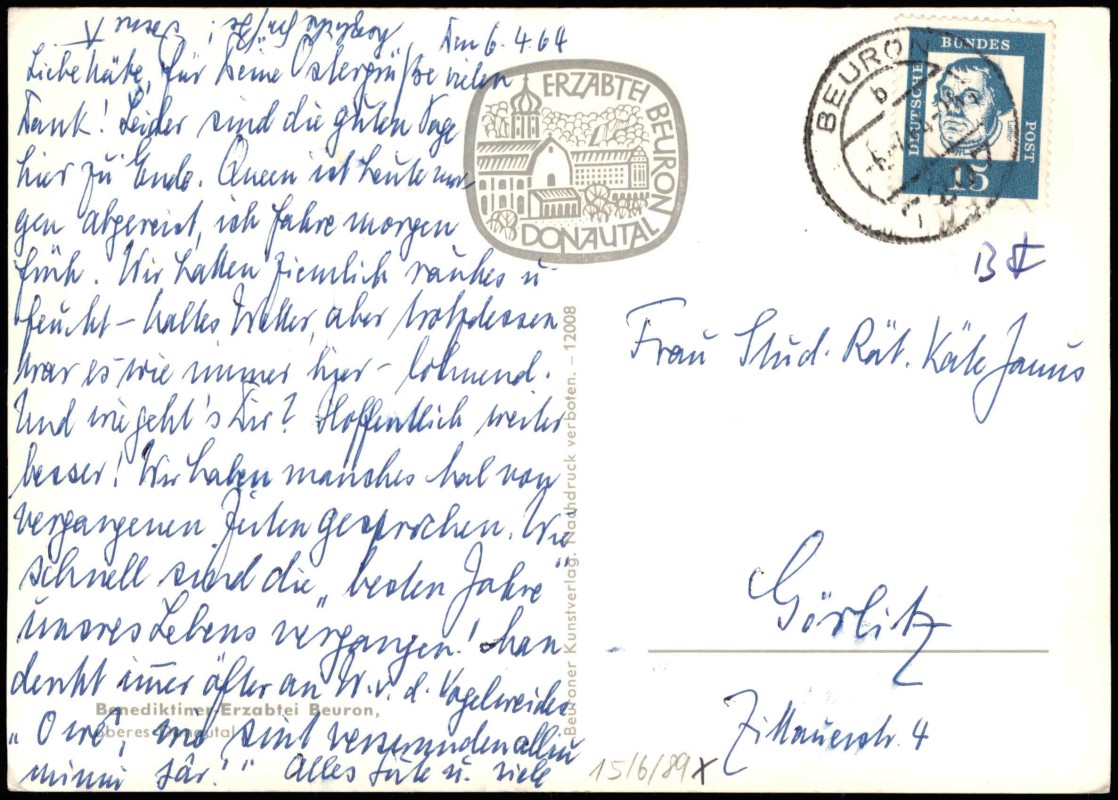 Den 6.4.64
Liebe Käte, für Deine Ostergrüße vielen
Dank! Leider sind die guten Tage
hier zu Ende. ist heute mor
gen abgereist, ich fahre morgen
früh. Wir hatten ziemlich rauhes u
feucht-kaltes Wetter, aber trotzdessen
war es wie immer hier - lohnend.
Und wie geht's Dir? Hoffentlich weiter
besser! Wir haben manches mal von
vergangenen Zeiten gesprochen. Wie
schnell sind die „besten Jahre"
unsres Lebens vergangen! Man
denkt immer öfter an W.v.d. Vogelweides
„O wê, wo sint verswunden alliu
miniu jâr!" Alles Gute u. viele
herzliche Grüße! Deine
Benediktiner-Erzabtei Beuron,
oberes Donautal
Beuroner Kunstverlag. Nachdruck verboten. - 12008
ERZABTEI BEURON
DONAUTAL
BEURON
b
DEUTSCHE BUNDESPOST
Luther
15
Frau Stud. Rät. Käte Janus
Görlitz
Zittauerstr. 4
15/6/89 x